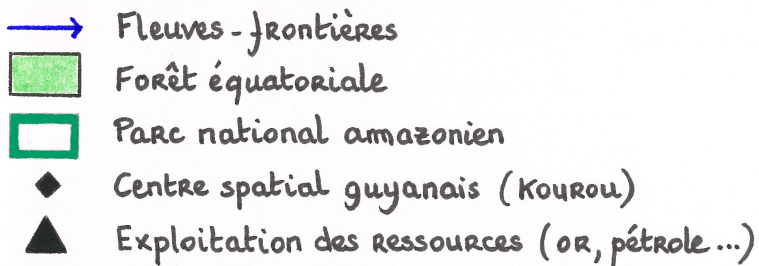 Fleuves-frontières
Forêt équatoriale
Parc national amazonien
Centre spatial guyanais (Kourou)
Exploitation des ressources (or, pétrole...)